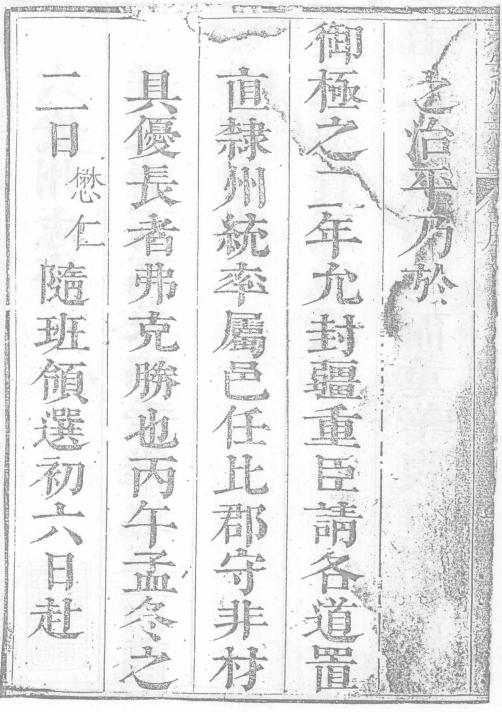 之治平乃於
御極之二年允封疆重臣請各道置
直隸州統率屬邑任比郡守非材
具優長者弗克勝也丙午孟冬之
二日懋仁隨班領選初六日赴